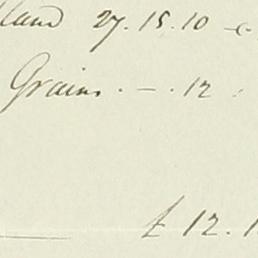 land 27.15.10
Grains . — . 12
£ 12.1